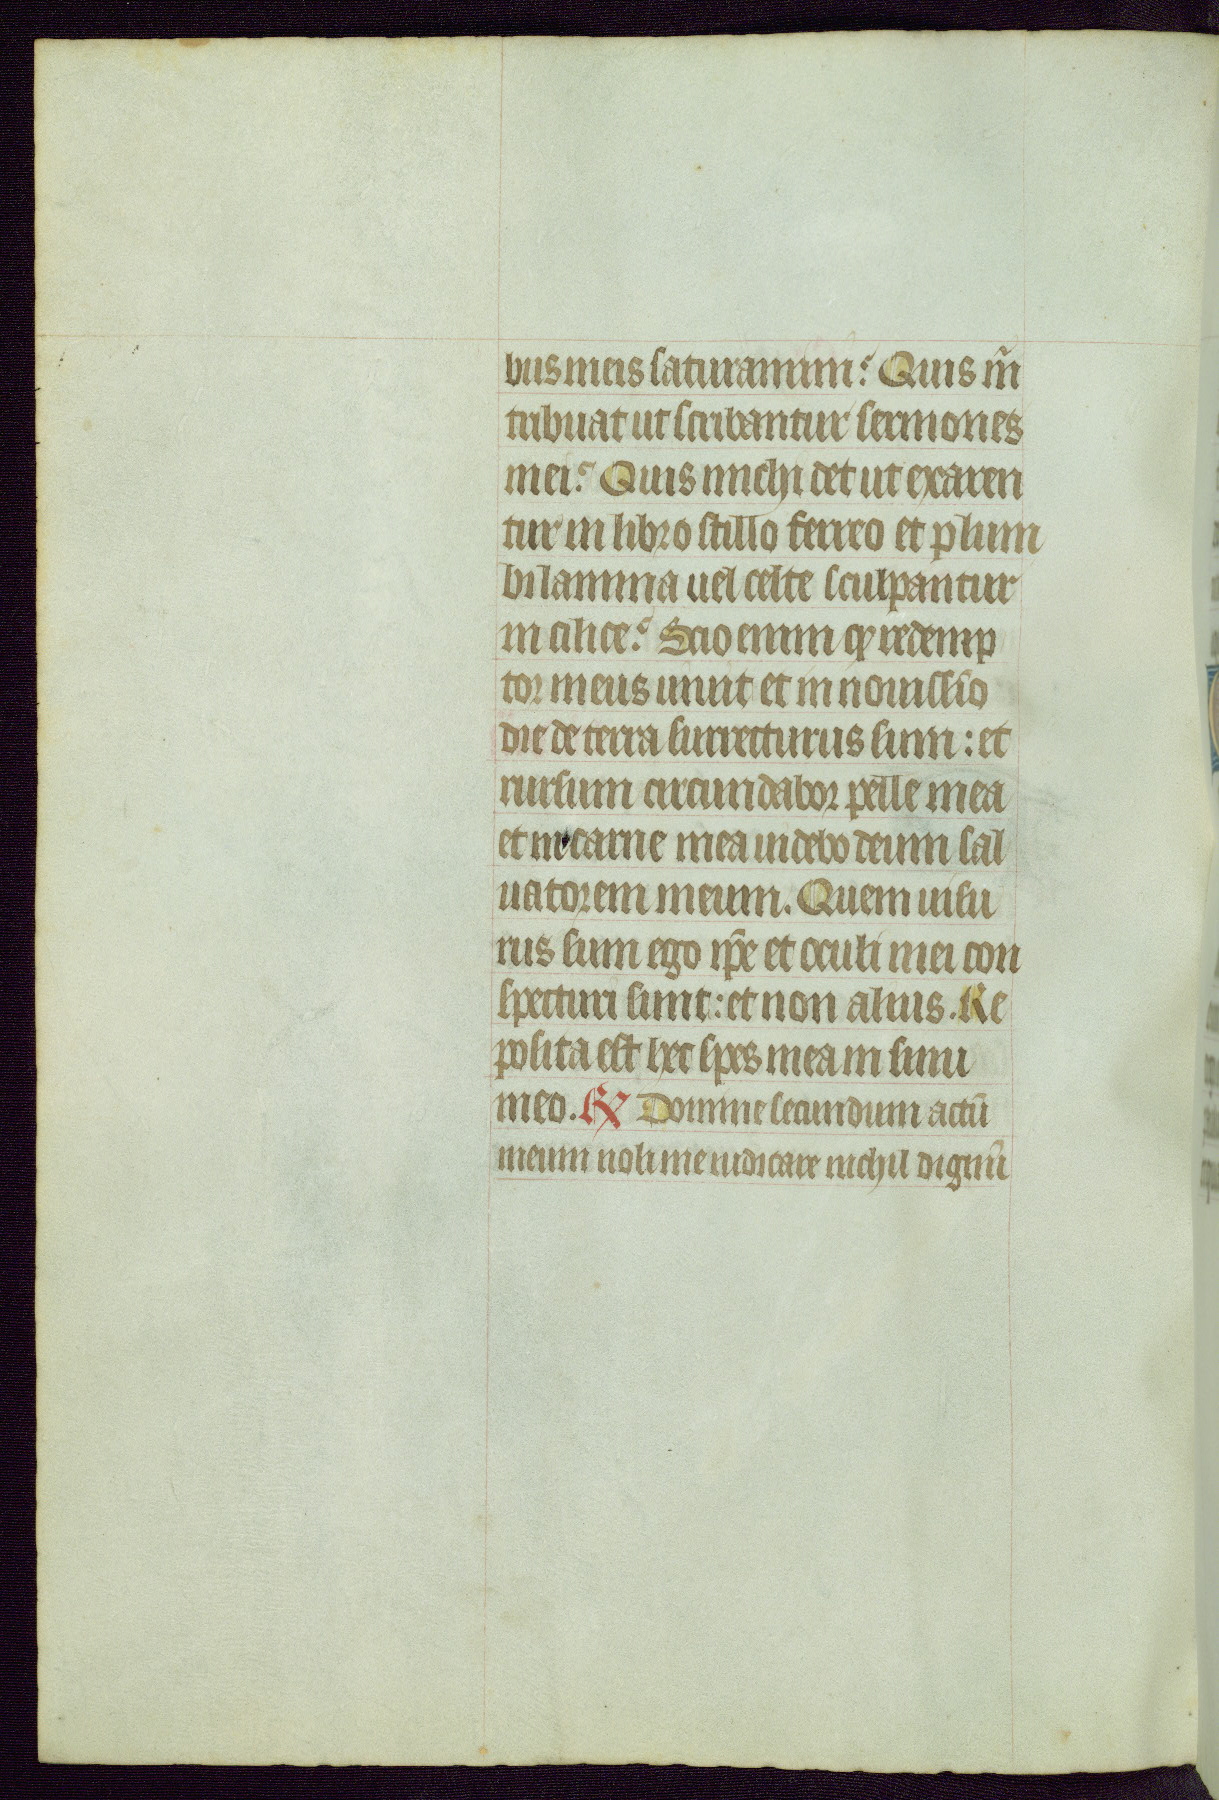 bus meis saturamini? Quis m̃
tribuat ut scribantur sermones
mei? Quis michi det ut exaren
tur in libro stillo ferreo et plum
bi lamina uel celte sculpantur
in cilice? Scio enim ꝙ redemp
tor meus uiuit et in nouissīo
die de terra surrecturus sum: et
rursum circumdabor pelle mea
et in carne mea uidebo deum sal
uatorem meum. Quem uisu
rus sum ego ip̄e et oculi mei con
specturi sunt: et non alius. Re
posita est hec spes mea in sinu
meo. ℟ Domine secundum actū
meum noli me iudicare nichil dignū